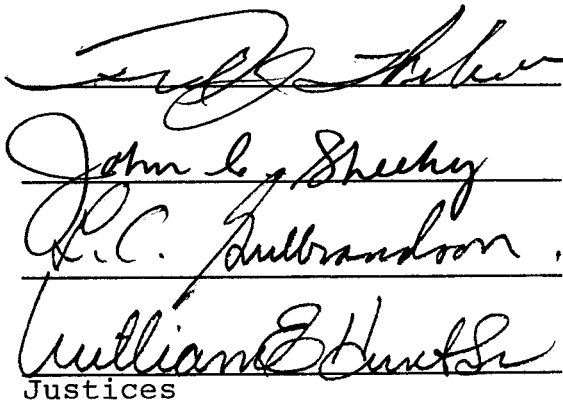 John C. Sheehy
L.C. Gulbrandson.
William E Hunt Sr
Justices